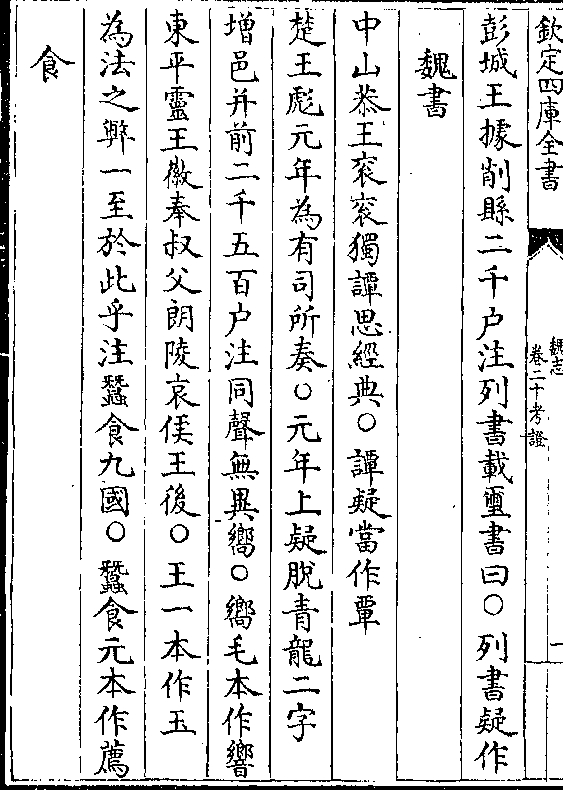 欽定四庫全書
魏志
卷二十考證
一
彭城王據削縣二千户注列書載璽書曰○列書疑作
魏書
中山恭王衮衮獨譚思經典○譚疑當作覃
楚王彪元年為有司所奏○元年上疑脫青龍二字
增邑并前二千五百户注同聲無異嚮○嚮毛本作響
東平靈王徽奉叔父朗陵哀侯王後○王一本作玉
為法之弊一至於此乎注蠶食九國○蠶食元本作薦
食